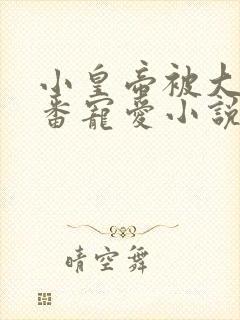 小皇帝被大
番寵愛小說
晴空舞